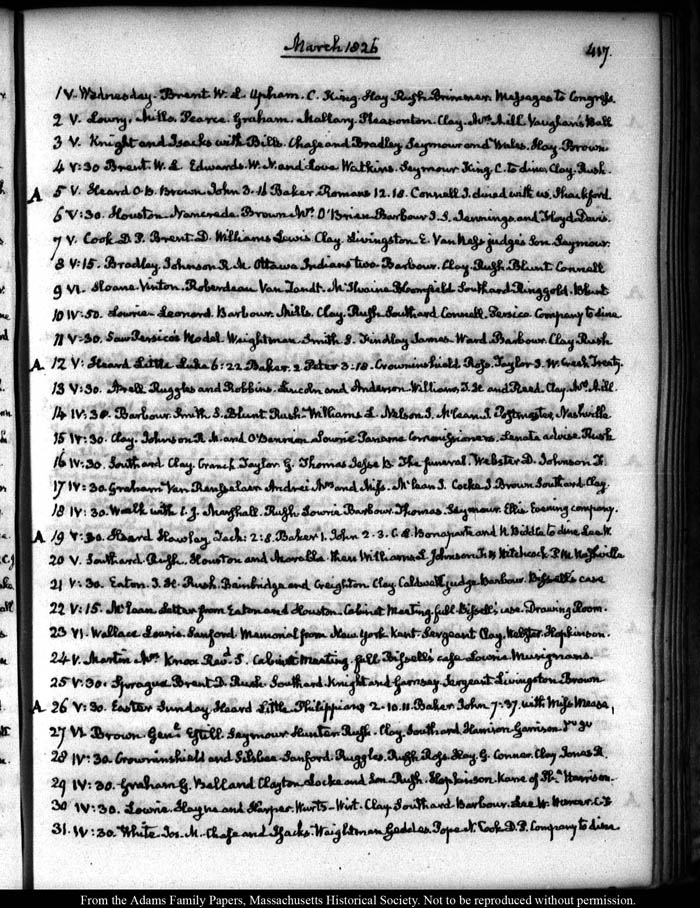 March 1826
417.
1 V. Wednesday. Brent W. L. Upham. C. King. Hay Rush Brimmer. Messages to Congress.
2 V. Lowry. Mills. Pearce. Graham. Mallary. Pleasonton. Clay. Mrs. Mill. Vaughan's Ball
3 V. Knight and Isacks with Bills. Chase and Bradley Seymour and Wales. Hay. Brown
4 V:30 Brent. W. L. Edwards. W. N. and Love Watkins. Seymour King C. to dine. Clay. Rush.
A 5 V. Heard O. B. Brown. John 3. 16 Baker Romans 12. 18. Connell J. dined with us. Shackford
6 V:30. Houston. Nancrede. Brown Mrs. O'Brien Barbour J. S. Jennings. and Floyd Davis.
7 V. Cook D. P. Brent. D. Williams Lewis Clay. Livingston E. Van Ness judge's Son Seymour.
8 V:15. Bradley. Johnson R. M Ottawa Indians two. Barbour. Clay. Rush. Blunt Connell
9 VI. Sloane. Vinton. Roberdeau Van Zandt. McIlvaine Bloomfield Southard Ringgold. Blunt
10 IV:50. Lowrie. Leonard. Barbour. Mills. Clay. Rush Southard Connell. Persico Company to dine
11 V:30. Saw Persico's Model. Weightman. Smith S. Findlay James. Ward. Barbour. Clay Rush
A 12 V: Heard Little Luke 6:22 Baker. 2 Peter 3:18. Crowninshield Ross. Taylor J. W. Creek Treaty.
13 V:30. Ruggles and Robbins. Lincoln and Anderson. Williams. and Reed. Clay. Mrs. Mill.
14 IV:30. Barbour. Smith. S. Blunt Rush. Williams L. Nelson J. McLean J. Postmaster, Nashville
15 IV:30. Clay. Johnson R. M. and Lowrie Panama Commissioners. Senate advise. Rush
16 IV:30. Southard Clay. Cranch Taylor. G. Thomas Jesse B. The funeral. Webster D. Johnson F.
17 IV:30. Graham Van Rensselair Andrei Mrs and Miss. McLean J. Cocke J. Brown Southard Clay.
18 IV:30. Walk with C. J. Marshall. Rush. Lowrie Barbour Thomas. Seymour. Ellis Evening company.
A 19 V:30. Heard Hawley Zach: 2:8. Baker 1. John 2. 3. C. L. Bonaparte and N Biddle to dine
20 V. Southard Rush. Houston and Williams L. Johnson Hitchcock. P. M. Nashville
21 V:30. Eaton. J. H. Rush. Bainbridge and Creighton Clay Caldwell judge Barbour. Bissell's case
22 V:15. McLean Letter from Eaton and Houston. Cabinet Meeting full. Bissell's case. Drawing Room.
23 VI. Wallace Lowrie. Sanford Memorial from New York Kent. Sergeant Clay. Webster. Hopkinson.
24 V. Martin Mrs Knox Revd. S. Cabinet Meeting. full Bissell's case Lowrie
25 V:30. Sprague Brent. D. Rush Southard Knight and Sergeant Livingston Brown
A 26 V:30. Easter Sunday. Heard Little Philippians 2. 10. 11. Baker John 7:37. with Miss Mease,
27 VI. Brown Genl. Estill Seymour Hunter Rush. Clay. Southard Harrison
28 IV:30. Crowninshield and Silsbee Sanford. Ruggles. Rush Ross. Hay G. Connor. Clay Jones R.
29 IV:30. Graham G. Ball and Clayton. Locke and Son. Rush. Hopkinson. Kane of Pha. Harrison.
30 IV:30. Lowrie. Hayne and Harper. Kurtz. Wirt. Clay Southard Barbour. Lee W. Mercer. C. F.
31. IV:30. White. Jos. M. Chase and Isacks. Weightman Geddes. Pope N. Cook D. P. Company to dine
From the Adams Family Papers, Massachusetts Historical Society. Not to be reproduced without permission.